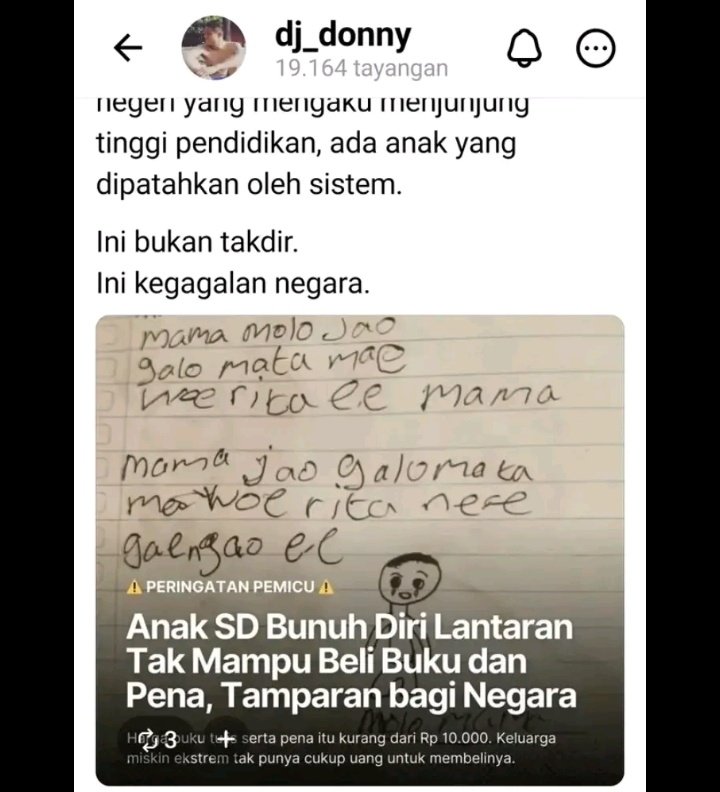 dj_donny
19.164 tayangan
negeri yang mengaku menjunjung
tinggi pendidikan, ada anak yang
dipatahkan oleh sistem.
Ini bukan takdir.
Ini kegagalan negara.
mama molo Jao
galo mata mae
woe rita ee mama
mama jao galo mata
mae woe rita nee
ee
⚠ PERINGATAN PEMICU ⚠
Anak SD Bunuh Diri Lantaran
Tak Mampu Beli Buku dan
Pena, Tamparan bagi Negara
Harga buku tulis serta pena itu kurang dari Rp 10.000. Keluarga
3 +
miskin ekstrem tak punya cukup uang untuk membelinya.